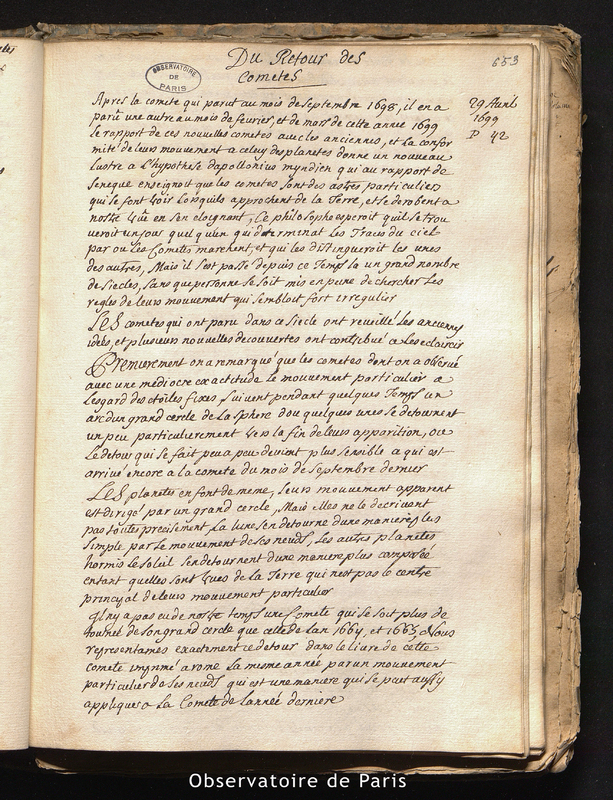 Du Retour des
Cometes
653
OBSERVATOIRE
DE
PARIS
29 Avril
1699
P 42
Apres la comete qui parut au mois de septembre 1698, il en a
paru une autre au mois de fevrier, et de mars de cette année 1699
le rapport de ces nouvelles cometes avec les anciennes, et la confor
mité de leurs mouvement a celuy des planetes donne un nouveau
lustre a L'hypothese dapollonius myndien qui au rapport de
seneque enseignoit que les cometes sont des astres particuliers
qui se font voir Lorsquils approchent de la Terre, et se derobent a
nostre veüe en sen eloignant, Ce philosophe esperoit quil se trou
veroit un jour quelqu'un qui determinat les Traces du ciel
par ou les Cometes marchent, et qui les distingueroit les unes
des autres, Mais il s'est passé depuis ce Temps la un grand nombre
de siecles, sans que personne se soit mis en peine de chercher les
regles de leurs mouvement qui sembloit fort irregulier
LES cometes qui ont paru dans ce siecle ont reveillé les anciennes
idées, et plusieurs nouvelles decouvertes ont contribué a les eclaircir
Premierement on a remarqué que les cometes dont on a observé
avec une mediocre exactitude le mouvement particulier a
Lesgard des etoiles fixes, suivent pendant quelques Temps un
arc dun grand cercle de la sphere dou quelques unes se detournent
un peu particulierement vers la fin de leurs apparition, ou
Le detour qui se fait peu a peu devient plus sensible a qui est
arrivé encore a la comete du mois de septembre dernier
LES planetes en font de meme, leurs mouvement apparent
est dirigé par un grand cercle, Mais elles ne le decrivent
pas toutes precisement La lune sen detourne dune maniere les
simple par le mouvement de ses neuds, Les autres planetes
hormis le soleil sen detournent dune maniere plus composée
entant quelles sont veues de la Terre qui nest pas le centre
principal de leurs mouvement particulier
Il ny a pas eu de nostre temps une Comete qui se soit plus de
tourneé de son grand cercle que celle de Lan 1664, et 1665, Nous
representames exactement ce detour dans le livre de cette
comete imprimé a rome La mesme année par un mouvement
particulier de ses neuds qui est une maniere qui se peut aussy
appliquer a La Comete de lannée derniere
Observatoire de Paris